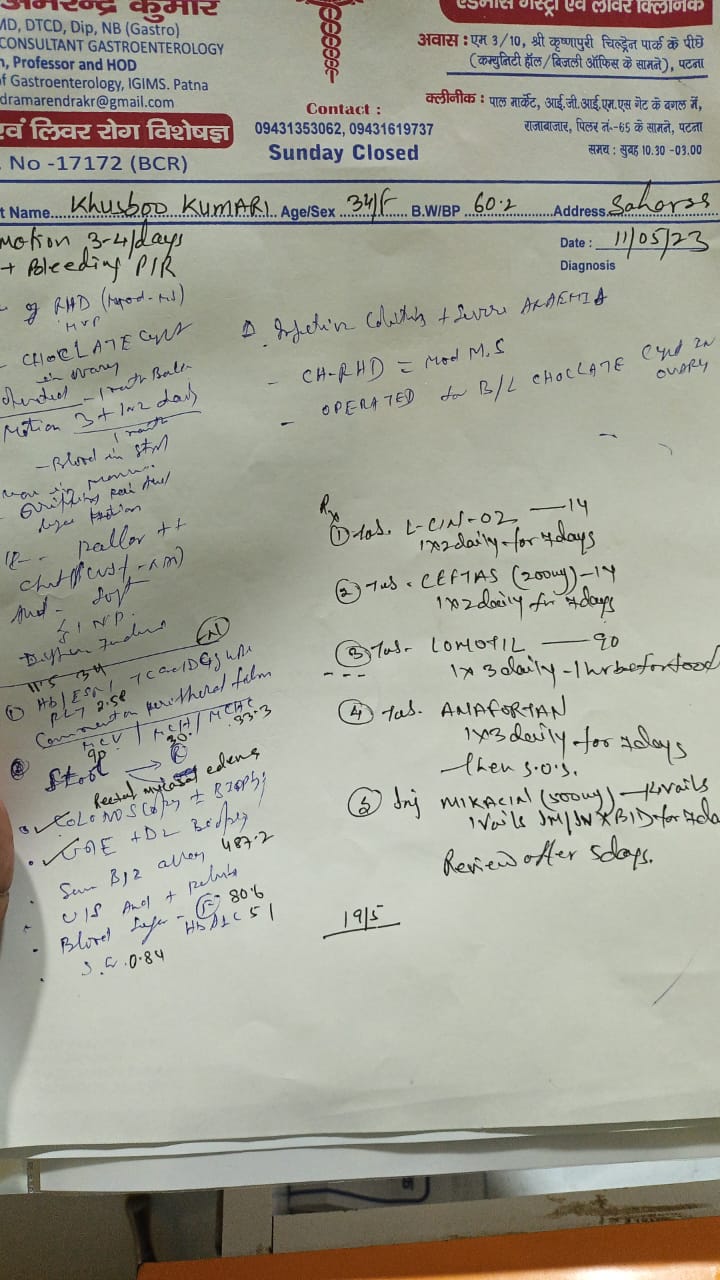 अमरेन्द्र कुमार
MD, DTCD, Dip, NB (Gastro)
CONSULTANT GASTROENTEROLOGY
, Professor and HOD
of Gastroenterology, IGIMS. Patna
dramarendrakr@gmail.com
एवं लिवर रोग विशेषज्ञ
. No -17172 (BCR)
Contact :
09431353062, 09431619737
Sunday Closed
एडभांस गैस्ट्रो एवं लीवर क्लिनिक
आवास : एम 3/10, श्री कृष्णापुरी चिल्ड्रेन पार्क के पीछे
(कम्युनिटी हॉल/बिजली ऑफिस के सामने), पटना
क्लीनीक : पाल मार्केट, आई.जी.आई.एम.एस गेट के बगल में,
राजाबाजार, पिलर नं.-65 के सामने, पटना
समय : सुबह 10.30 -03.00
t Name Khusboo KUMARI Age/Sex 34/F B.W/BP 60.2 Address
Date : 11/05/23
Diagnosis
Motion 3-4/days
+ Bleeding P/R
of RHD
MVP
CHOCLATE Cyst
in ovary
Motion 3+
- Blood in
pallor ++
Soft
Hb/ESR/ TC
PLT 2.58
Comment on peripheral film
MCV / MCH / MCHC
90 30. 33.3
Stool
Rectal mucosal edema
COLONOSCOPY ± Biopsy
+ D2 Biopsy
B12 487.2
U/S Abd + Pelvis
Blood Sugar - F 80.6
HbA1C 51
0.84
D. Infective Colitis + Severe ANAEMIA
- CH-RHD = Mod M.S
- OPERATED for B/L CHOCLATE Cyst IN
OVARY
Rx
① Tab. L-CIN-OZ — 14
1x2 daily for 7 days
② Tab. CEFTAS (200mg) - 14
1x2 daily for 7 days
③ Tab. LOMOFIL — 90
1x3 daily - 1 hr before food
④ Tab. ANAFORTAN
1x3 daily for 7 days
then S.O.S.
⑤ Inj MIKACIN (500mg) — 14 vails
1 vails IM/IV x BID for 7 da
Review after 5 days.
19/5